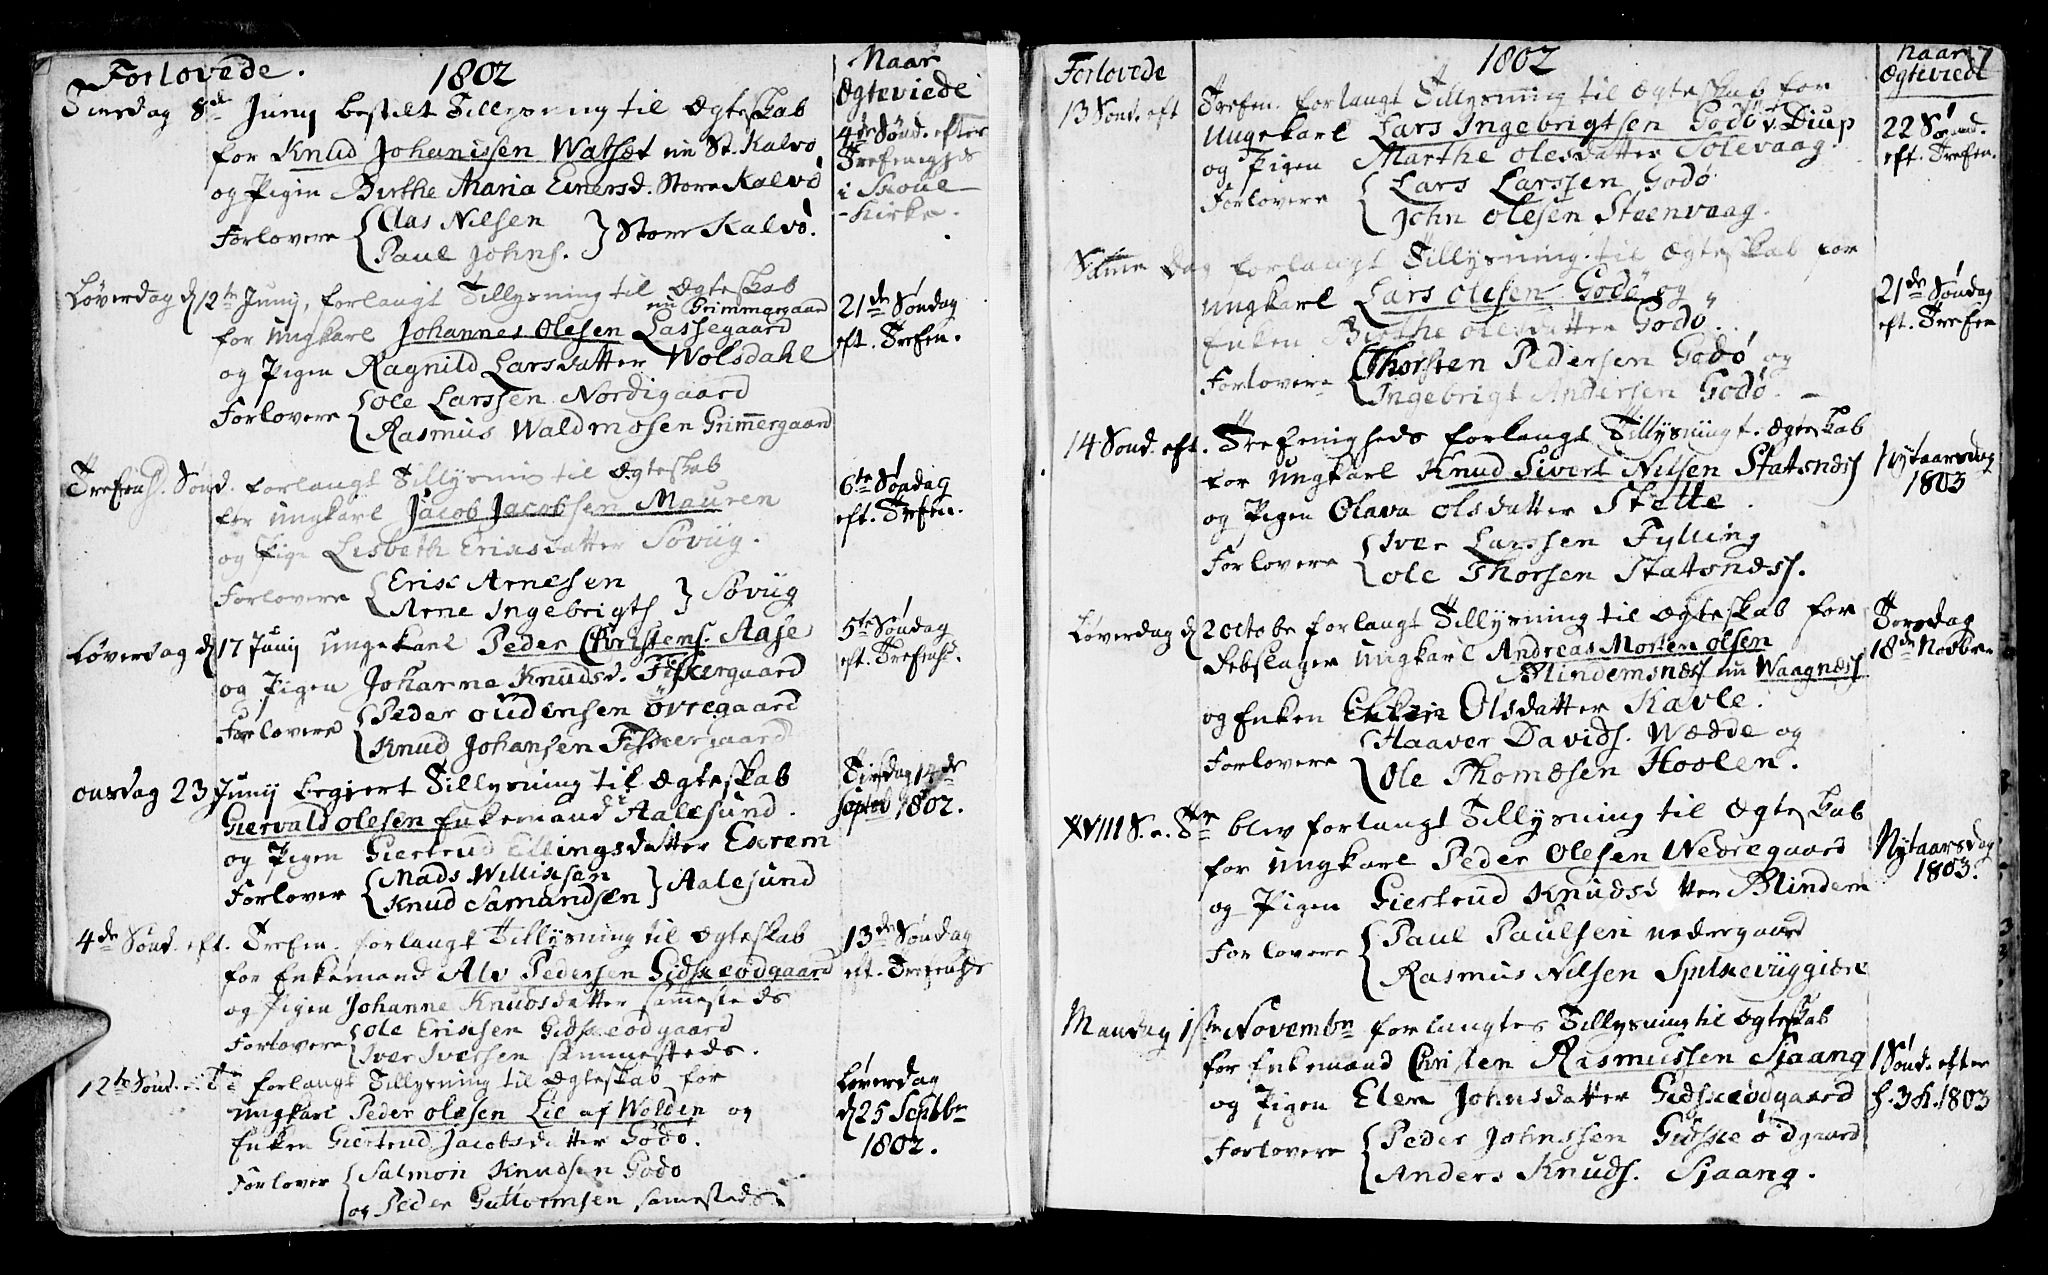 Forlovede. 1802 Naar Ægteviede
Tirsdag 8de Junij bestilt Tillysning til Ægteskab
for Knud Johanissen Watset nu St. Kalvö
og Pigen Birthe Maria Einersd. Store Kalvö
Forlovere Clas Nilsen
Paul Johns. Store Kalvö.
4de Sönd. efter
Trefenigheds
i Skoue
Kirke.
Löverdag d 12te Junij, forlangt Tillysning til Ægteskab
nu Grimmergaard
for Ungkarl Johannes Olesen Lassegaard
og Pigen Ragnild Larsdatter Wolsdahl
Forlovere Ole Larssen Nordigaard
Rasmus Waldmosen Grimergaard
21de Söndag
eft. Trefen.
Trefenh. Sönd. forlangt Tillysning til Ægteskab
for Ungkarl Jacob Jacobsen Mauren
og Pige Lisbeth Erixdatter Sövüg.
Forlovere Erix Arnesen
Arne Ingebrigts Sövüg
6te Söndag
eft. Trefen.
Löverdag d 17 Junij Ungekarl Peder Christens. Aase
og Pigen Johanna Knudsd. Fiskergaard
Forlovere Peder Oudensen Övregaard
Knud Johansen Fiskergaard
5te Söndag
eft. Trefenhd.
Onsdag 23 Junij begiert Tillysning til Ægteskab
Giervald Olesen Enkemand i Aalesund.
og Pigen Giertrud Ellingsdatter Exrem
Forlover Mads Willixsen
Knud Samundsen Aalesund
Tirsdag
Septeb 1802.
4de Sönd. eft. Trefen. forlangt Tillysning til Ægteskab
for Enkemand Alv Pedersen Gidskeödgaard
og Pigen Johanne Knudsdatter sammesteds
Forlovere Ole Erixsen Gidskeödgaard
Iver Iversen sammesteds.
13de Söndag
eft. Trefenhds
12te Sönd. e. Tr. forlangt Tillysning til Ægteskab for
Ungkarl Peder Olesen Lie af Wolden og
Enken Giertrud Jacobsdatter Godö.
Forlover Salmon Knudsen Godö
og Peder Guttormsen sammesteds.
Löverdag
d 25 Septbr
1802.
Forlovede 1802 Naar Ægteviede 7
13 Sönd. eft Trefen. forlangt Tillysning til Ægteskab for
Ungekarl Lars Ingebrigtsen Godö v. Diup
og Pigen Marthe Olesdatter Solevaag.
Forlovere Lars Larssen Godö
John Olesen Steenvaag.
22 Sönd.
eft. Trefen.
Same Dag forlangt Tillysning til Ægteskab for
Ungkarl Lars Olesen Godö og
Enken Birthe Olesdatter Godö.
Forlovere Thorsten Pedersen Godö og
Ingebrigt Andersen Godö.
21de Söndag
eft. Trefen
14 Sönd. eft. Trefenigheds forlangt Tillysning t. Ægteskab
for Ungkarl Knud Sivert Nilsen Statsness
og Pigen Olava Olsdatter Stette.
Forlovere Iver Larssen Fylling
Ole Thorsen Statsness.
Nytaarsdag
1803
Löverdag d 2 Octobr forlangt Tillysning til Ægteskab for
Rebslager Ungkarl Andreas Morten Olsen
Blindemsness nu Waagness
og Enken Olsdatter Kavle.
Forlovere Haaver Davids. Wedde og
Ole Thomesen Hoolen.
Torsdag
18de Novbr
XVIII S. e. Tr blev forlangt Tillysning til Ægteskab
for Ungkarl Peder Olesen Nedregaard
og Pigen Giertrud Knudsdatter Blindem
Forlovere Paul Paulsen Nedregaard
Rasmus Nilsen
Nytaarsdag
1803.
Mandag 1ste Novembr forlangtes Tillysning til Ægteskab
for Enkemand Christen Rasmussen Sjaang
og Pigen Elen Johnsdatter Gidskeödgaard
Forlovere Peder Johnssen Gidskeödgaard
Anders Knuds. Sjaang.
1 Sönd. efter
h. 3 K. 1803